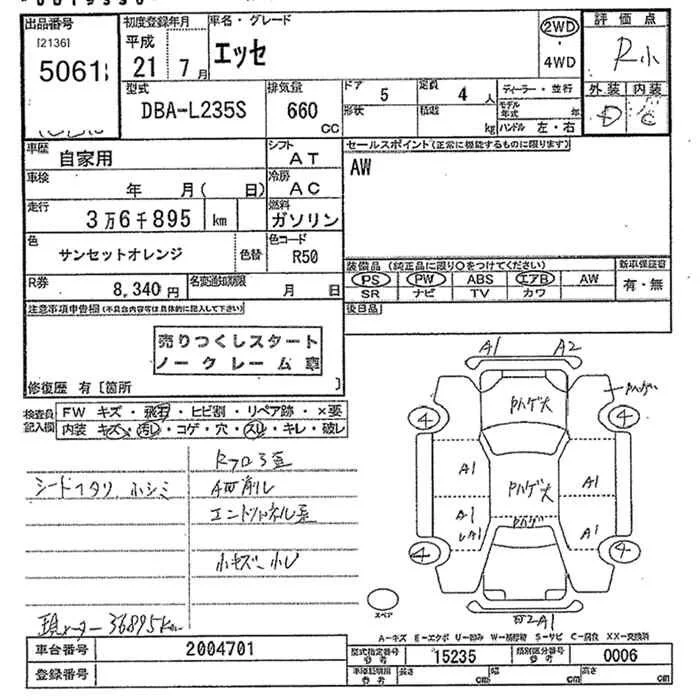 出品番号
[2136]
5061
初度登録年月
平成
21 7月
車名・グレード
エッセ
2WD
・
4WD
評価点
R小
外装 内装
D C
型式
DBA-L235S
排気量
660
CC
ドア
5
定員
4 人
形状
積載
kg
ディーラー・並行
モデル年式 年
ハンドル 左・右
車歴
自家用
シフト
AT
セールスポイント(正常に機能するものに限ります)
AW
車検
年 月( 日)
冷房
AC
走行
3万6千895 km
燃料
ガソリン
色
サンセットオレンジ
色替
色コード
R50
装備品 (純正品に限り○をつけてください)
新車保証書
PS PW ABS エアB AW
SR ナビ TV カワ
有・無
R券
8,340円
名変通知期限
月 日
後日品
注意事項申告欄(不具合内容等は具体的に記入して下さい)
売りつくしスタート
ノークレーム車
修復歴 有〔箇所 〕
検査員
記入欄
FW キズ・飛石・ヒビ割・リペア跡・×要
内装 キズ・汚レ・コゲ・穴・スリ・キレ・破レ
A1 A2
Pハゲ大
4 4
A1 A1
Pハゲ大
A1 A1
Pハゲ
4 4
スペア
現メーター 36895km
A－キズ E－エクボ U－凹み W－補修跡 S－サビ C－腐食 XX－交換済
車台番号
2004701
型式指定番号
参考
15235
類別区分番号
参考
0006
登録番号
車庫証明用
参考
長さ
cm
幅
cm
高さ
cm